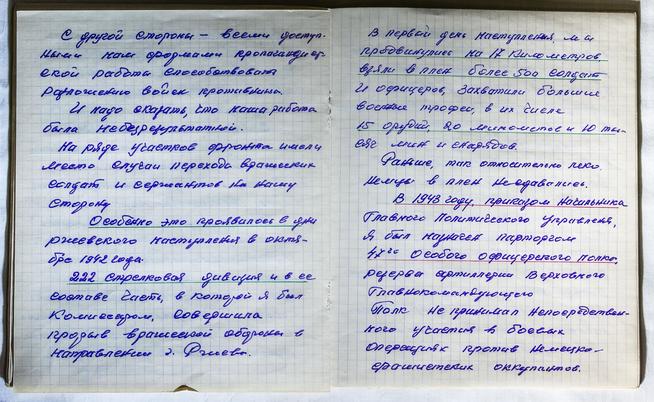 С другой стороны – всеми доступ-
ными нам формами пропагандист-
ской работы способствовать
разложению войск противника.
И надо сказать, что наша работа
была небезрезультатной.
На ряде участков фронта имели
место случаи перехода вражеских
солдат и сержантов на нашу
сторону.
Особенно это проявилось в дни
ржевского наступления в октя-
бре 1942 года.
222 стрелковая дивизия и в ее
составе часть, в которой я был
комиссаром, совершила
прорыв вражеской обороны в
направлении г. Ржева.
В первый день наступления, мы
продвинулись на 17 километров,
взяли в плен более 500 солдат
и офицеров, захватили большие
военные трофеи, в их числе
15 орудий, 20 минометов и 10 ты-
сяч мин и снарядов.
Раньше, так относительно легко,
немцы в плен не сдавались.
В 1943 году, приказом начальника
Главного Политического управления,
я был назначен парторгом
47го Особого офицерского полка,
резерва артиллерии Верховного
Главнокомандующего
Полк не принимал непосредствен-
ного участия в боевых
операциях против немецко-
фашистских оккупантов.